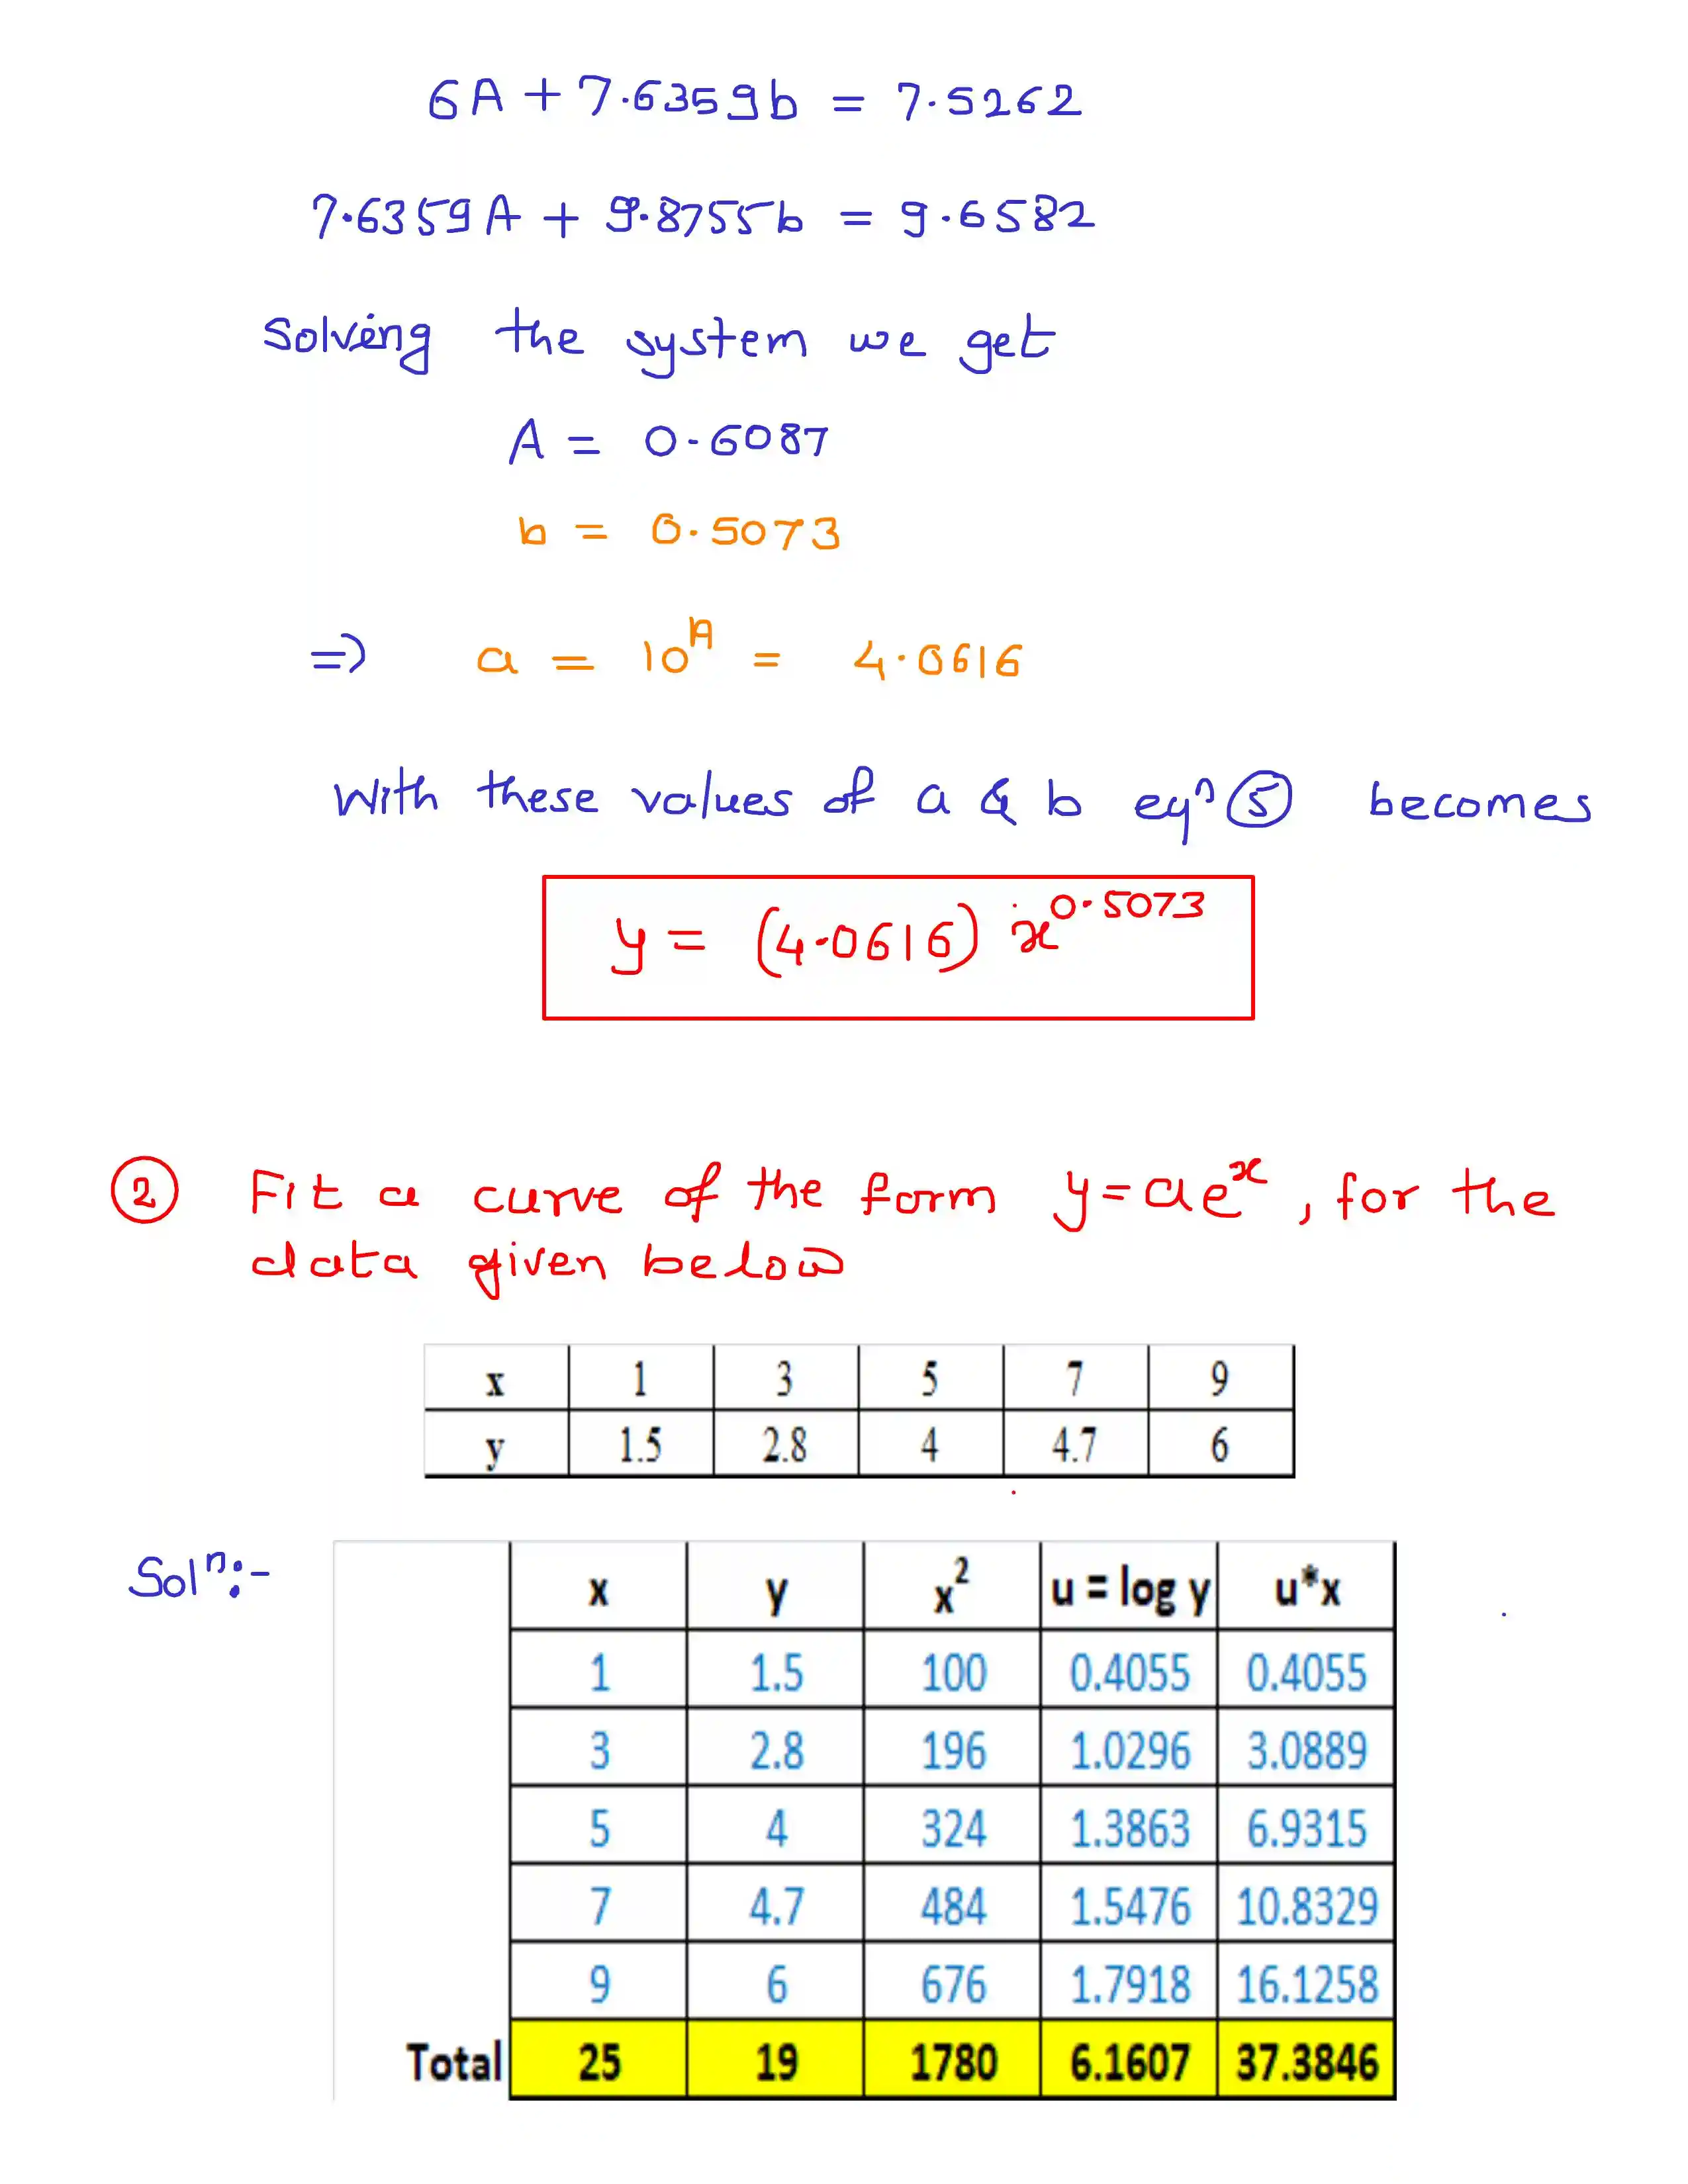 6A + 7.6359b = 7.5262
7.6359A + 9.8755b = 9.6582
Solving the system we get
A = 0.6087
b = 0.5073
=> a = 10^A = 4.0616
With these values of a & b eqⁿ ⑤ becomes
y = (4.0616) x^0.5073
② Fit a curve of the form y = ae^x, for the
data given below
x 1 3 5 7 9
y 1.5 2.8 4 4.7 6
Solⁿ:-
x y x² u = log y u*x
1 1.5 100 0.4055 0.4055
3 2.8 196 1.0296 3.0889
5 4 324 1.3863 6.9315
7 4.7 484 1.5476 10.8329
9 6 676 1.7918 16.1258
Total 25 19 1780 6.1607 37.3846